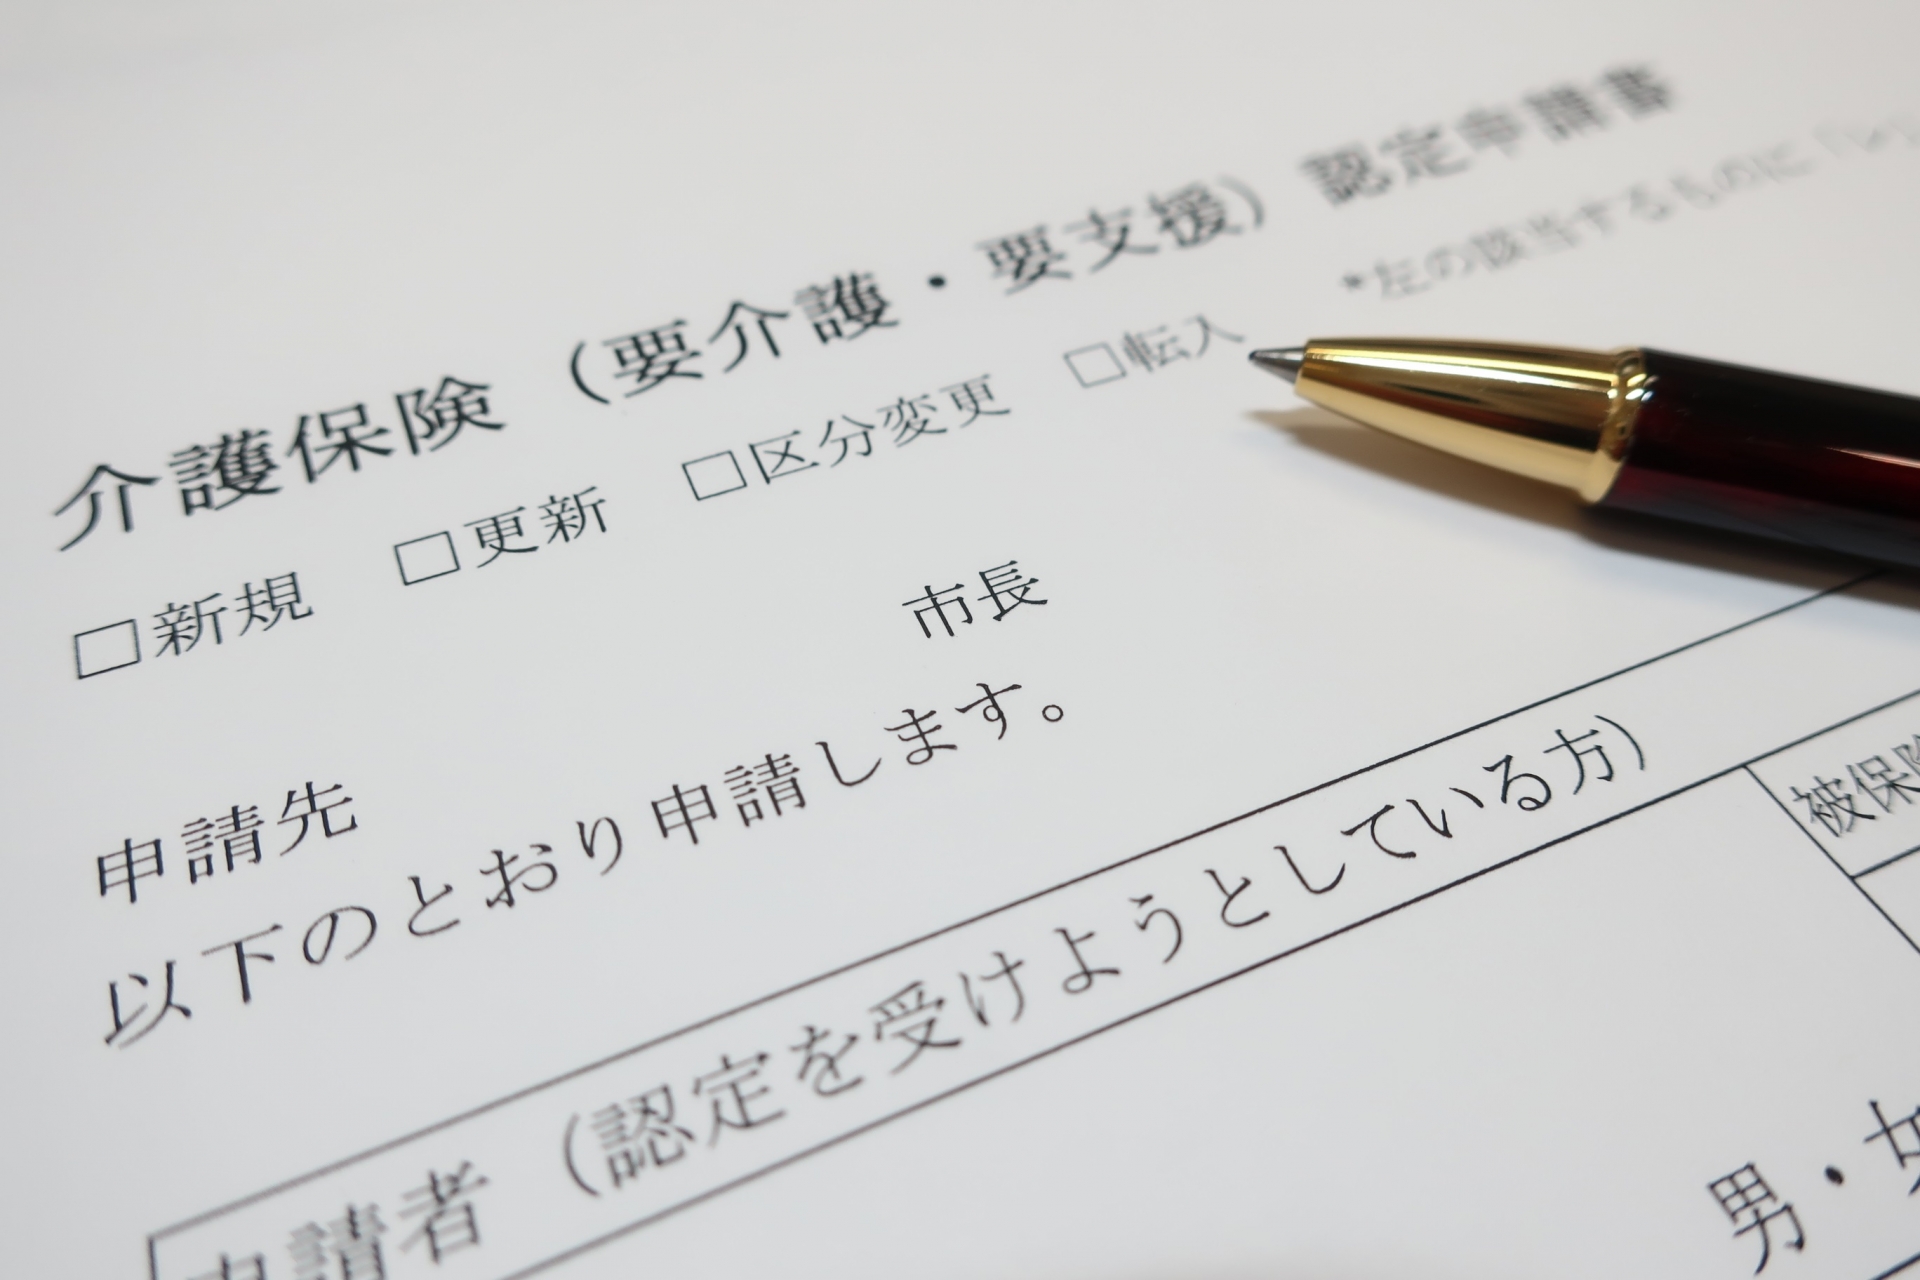 介護保険（要介護・要支援）認定申請書
*左の該当するものに「レ」
□新規　□更新　□区分変更　□転入
市長
申請先
以下のとおり申請します。
申請者（認定を受けようとしている方）
被保険
男・女